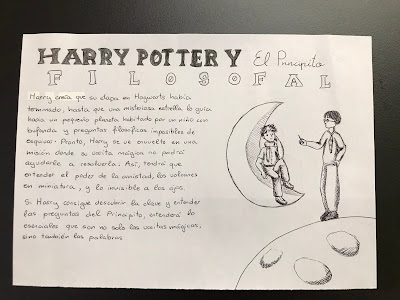 HARRY POTTER Y El Principito
FILOSOFAL
Harry creía que su etapa en Hogwarts había
terminado, hasta que una misteriosa estrella lo guía
hacia un pequeño planeta habitado por un niño con
bufanda y preguntas filosóficas imposibles de
esquivar. Pronto, Harry se ve envuelto en una
misión donde su varita mágica no podrá
ayudarle a resolverla. Así, tendrá que
entender el poder de la amistad, los volcanes
en miniatura, y lo invisible a los ojos.
Si Harry consigue descubrir la clave y entender
las preguntas del Principito, entenderá lo
esenciales que son no solo las varitas mágicas,
sino también las palabras